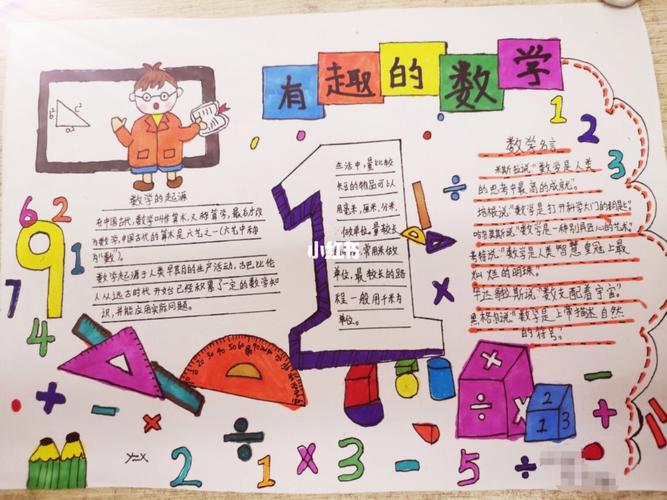 有趣的数学
b² c² a²
数学的起源
在中国古代,数学叫作算术,又称算学,最后才改
为数学,中国古代的算术是六艺之一(六艺中称
为"数")。
数学起源于人类早其目的生产活动,古巴比伦
人从远古时代开始已经积累了一定的数学知
识,并能应用实际问题。
生活中,量比较
长的物品可以
用毫米,厘米,分米,
做单位,量较长
常用米做
单位,最长的路
程一般用千米为
单位。
小红书
数学名言
米斯拉说"数学是人类
的思考中最高的成就"。
培根说"数学是打开科学大门的钥匙"。
哈尔莫斯说"数学是一种别具匠心的艺术"
高特说"数学是人类智慧皇冠上最
灿烂的明珠。
毕达哥拉斯说"数支配着宇宙"。
黑格尔说"数学是上帝描述自然
的符号"。
1 2 3
6 2 9 7 4
÷ ×
+ - × ÷ y=x 2 1 × 3 - 5 ÷ +
× ÷ × 2 1 3